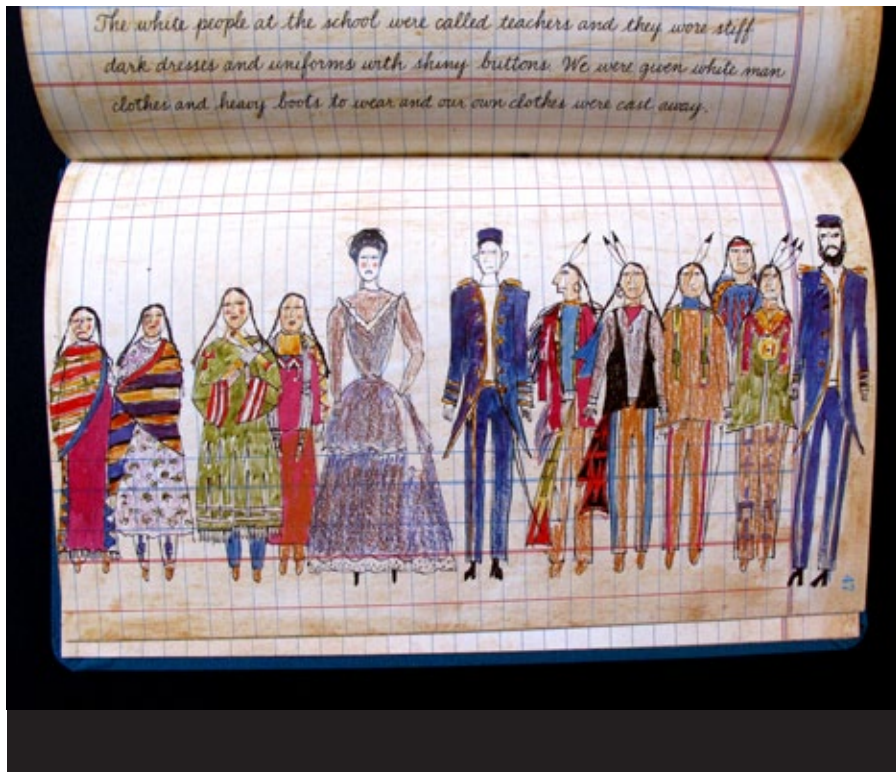 The white people at the school were called teachers and they wore stiff
dark dresses and uniforms with shiny buttons. We were given white man
clothes and heavy boots to wear and our own clothes were cast away.
47